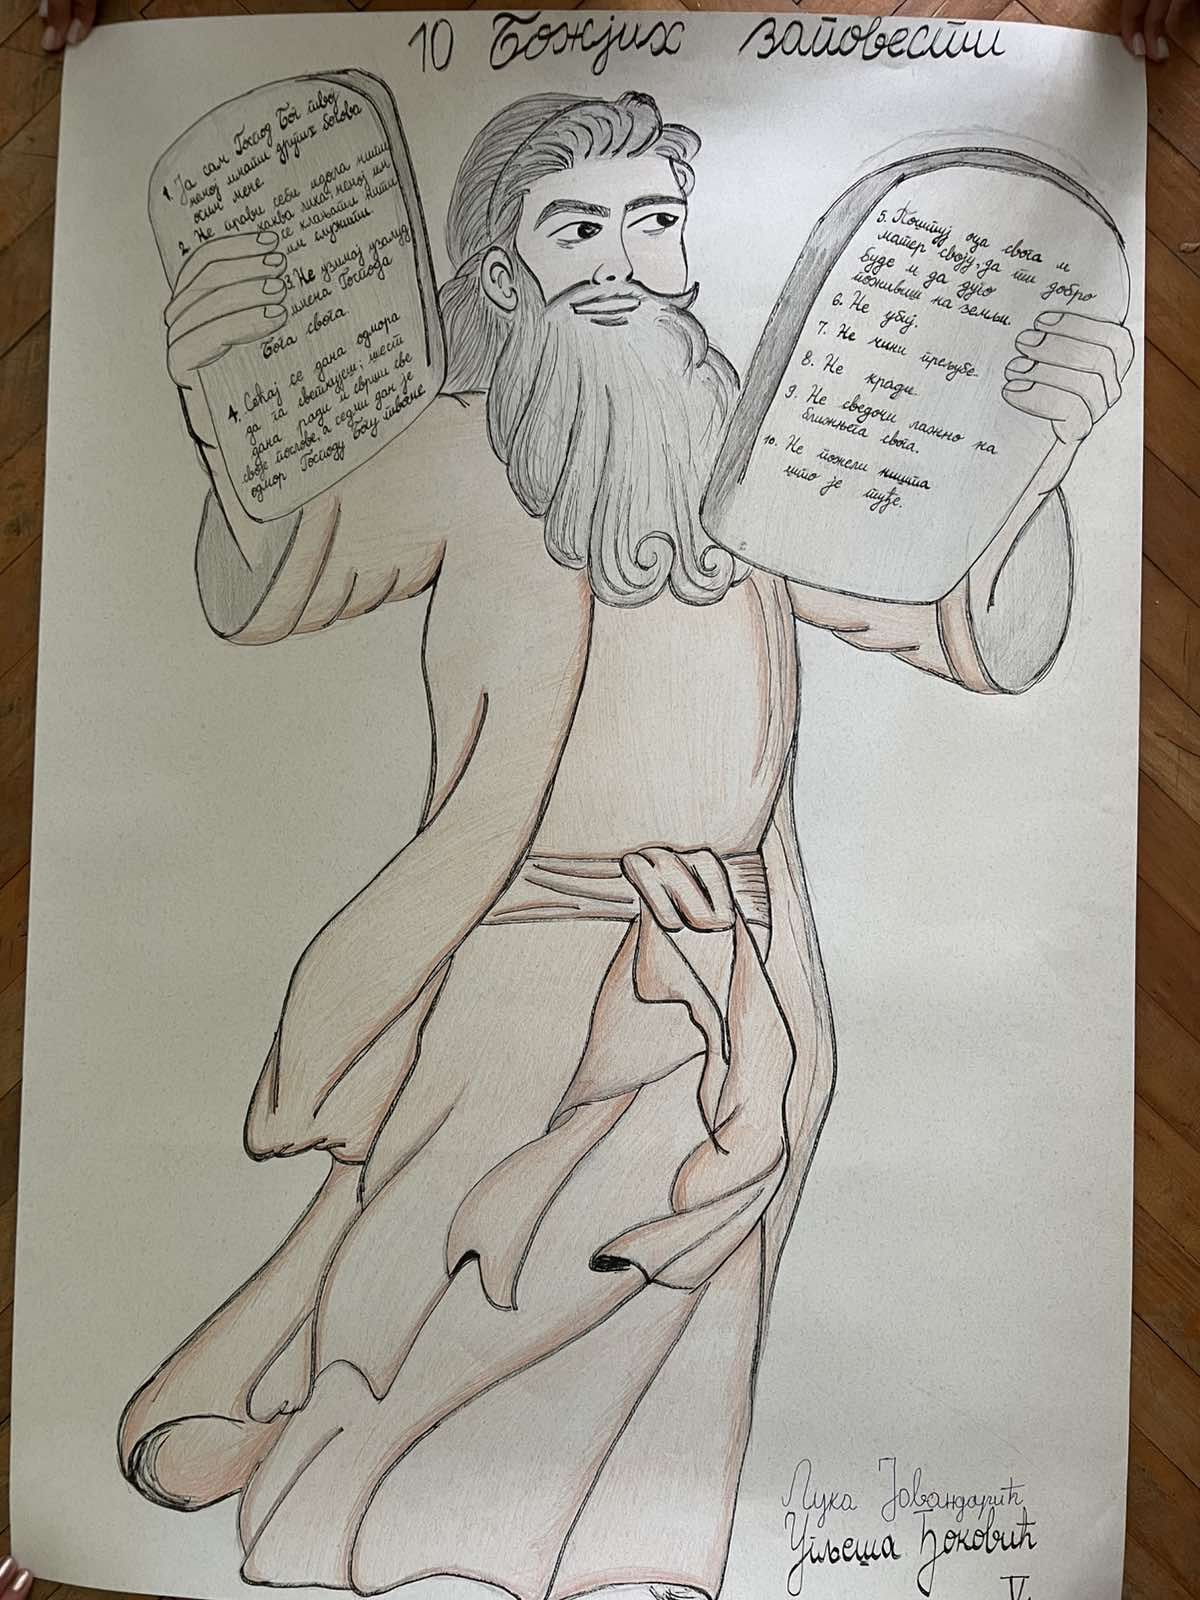 10 Божјих заповести
1. Ја сам Господ Бог твој
немој имати других богова
осим мене
2. Не прави себи идола нити
каква лика; немој им
се клањати нити
им служити.
3. Не узимај узалуд
имена Господа
Бога свога.
4. Сећај се дана одмора
да га светкујеш; шест
дана ради и сврши све
своје послове, а седми дан је
одмор Господу Богу твоме
5. Поштуј оца свога и
матер своју, да ти добро
буде и да дуго
поживиш на земљи.
6. Не убиј.
7. Не чини прељубе.
8. Не кради.
9. Не сведочи лажно на
ближњега свога.
10. Не пожели ништа
што је туђе.
Лука
Уљеша Ђоковић
V